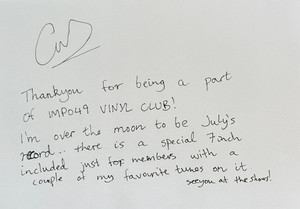 Thankyou for being a part
of IMPO49 VINYL CLUB!
I'm over the moon to be July's
record.. there is a special 7inch
included just for members with a
couple of my favourite tunes on it
see you at the shows!